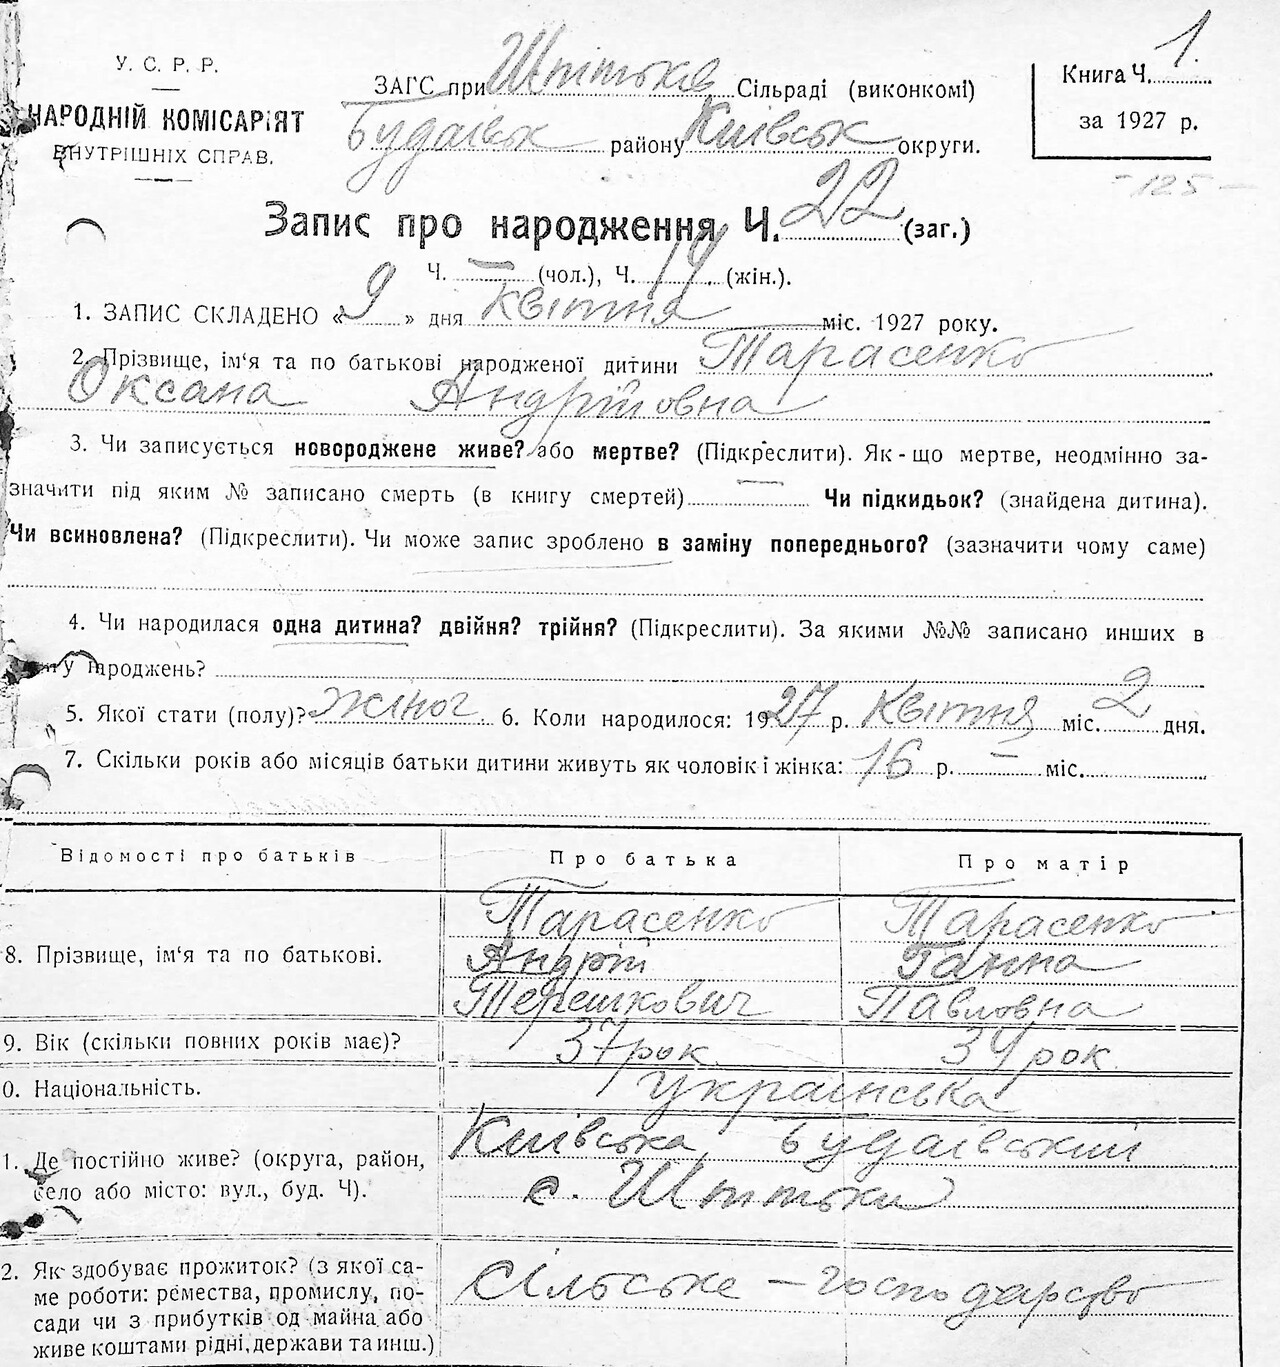 У. С. Р. Р.
НАРОДНІЙ КОМІСАРІЯТ
ВНУТРІШНІХ СПРАВ.
ЗАГС при Шпітьків Сільраді (виконкомі)
Будаївськ району Київськ округи.
Книга Ч. 1.
за 1927 р.
- 125 -
Запис про народження Ч. 22 (заг.)
Ч. — (чол.), Ч. 14. (жін.).
1. ЗАПИС СКЛАДЕНО « 9 » дня квітня міс. 1927 року.
2. Прізвище, ім‘я та по батькові народженої дитини Тарасенко
Оксана Андріївна
3. Чи записується новороджене живе? або мертве? (Підкреслити). Як-що мертве, неодмінно за-
значити під яким № записано смерть (в книгу смертей) — Чи підкидьок? (знайдена дитина).
Чи всиновлена? (Підкреслити). Чи може запис зроблено в заміну попереднього? (зазначити чому саме)
4. Чи народилася одна дитина? двійня? трійня? (Підкреслити). За якими №№ записано инших в
народжень?
5. Якої стати (полу)? жіноч. 6. Коли народилося: 1927 р. Квітня міс. 2 дня.
7. Скільки років або місяців батьки дитини живуть як чоловік і жінка: 16 р. — міс.
Відомості про батьків Про батька Про матір
8. Прізвище, ім‘я та по батькові.
Тарасенко Тарасенко
Андрій Ганна
Терешкович Павловна
9. Вік (скільки повних років має)? 37 рок 34 рок
0. Національність. українська
1. Де постійно живе? (округа, район,
село або місто: вул., буд. Ч).
Київська Будаівський
с. Шпітьки
2. Як здобуває прожиток? (з якої са-
ме роботи: ремества, промислу, по-
сади чи з прибутків од майна або
живе коштами рідні, держави та инш.)
сільське — господарство